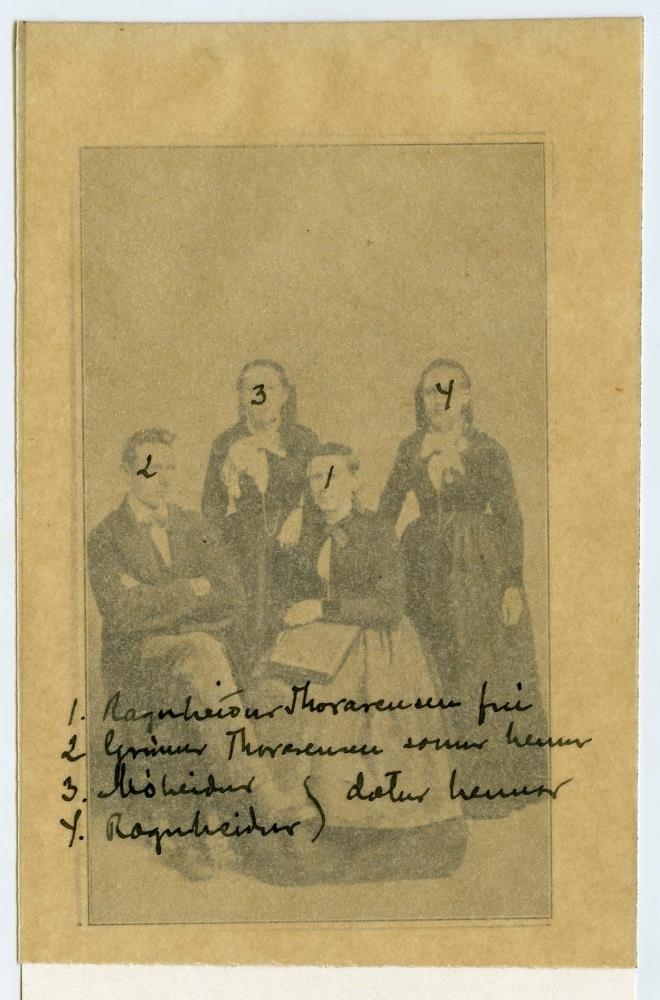 3
4
2
1
1. Ragnheiður Thorarensen frú
2 Grímur Thorarensen sonur hennar
3. Móheidur } dætur hennar
4. Ragnheidur